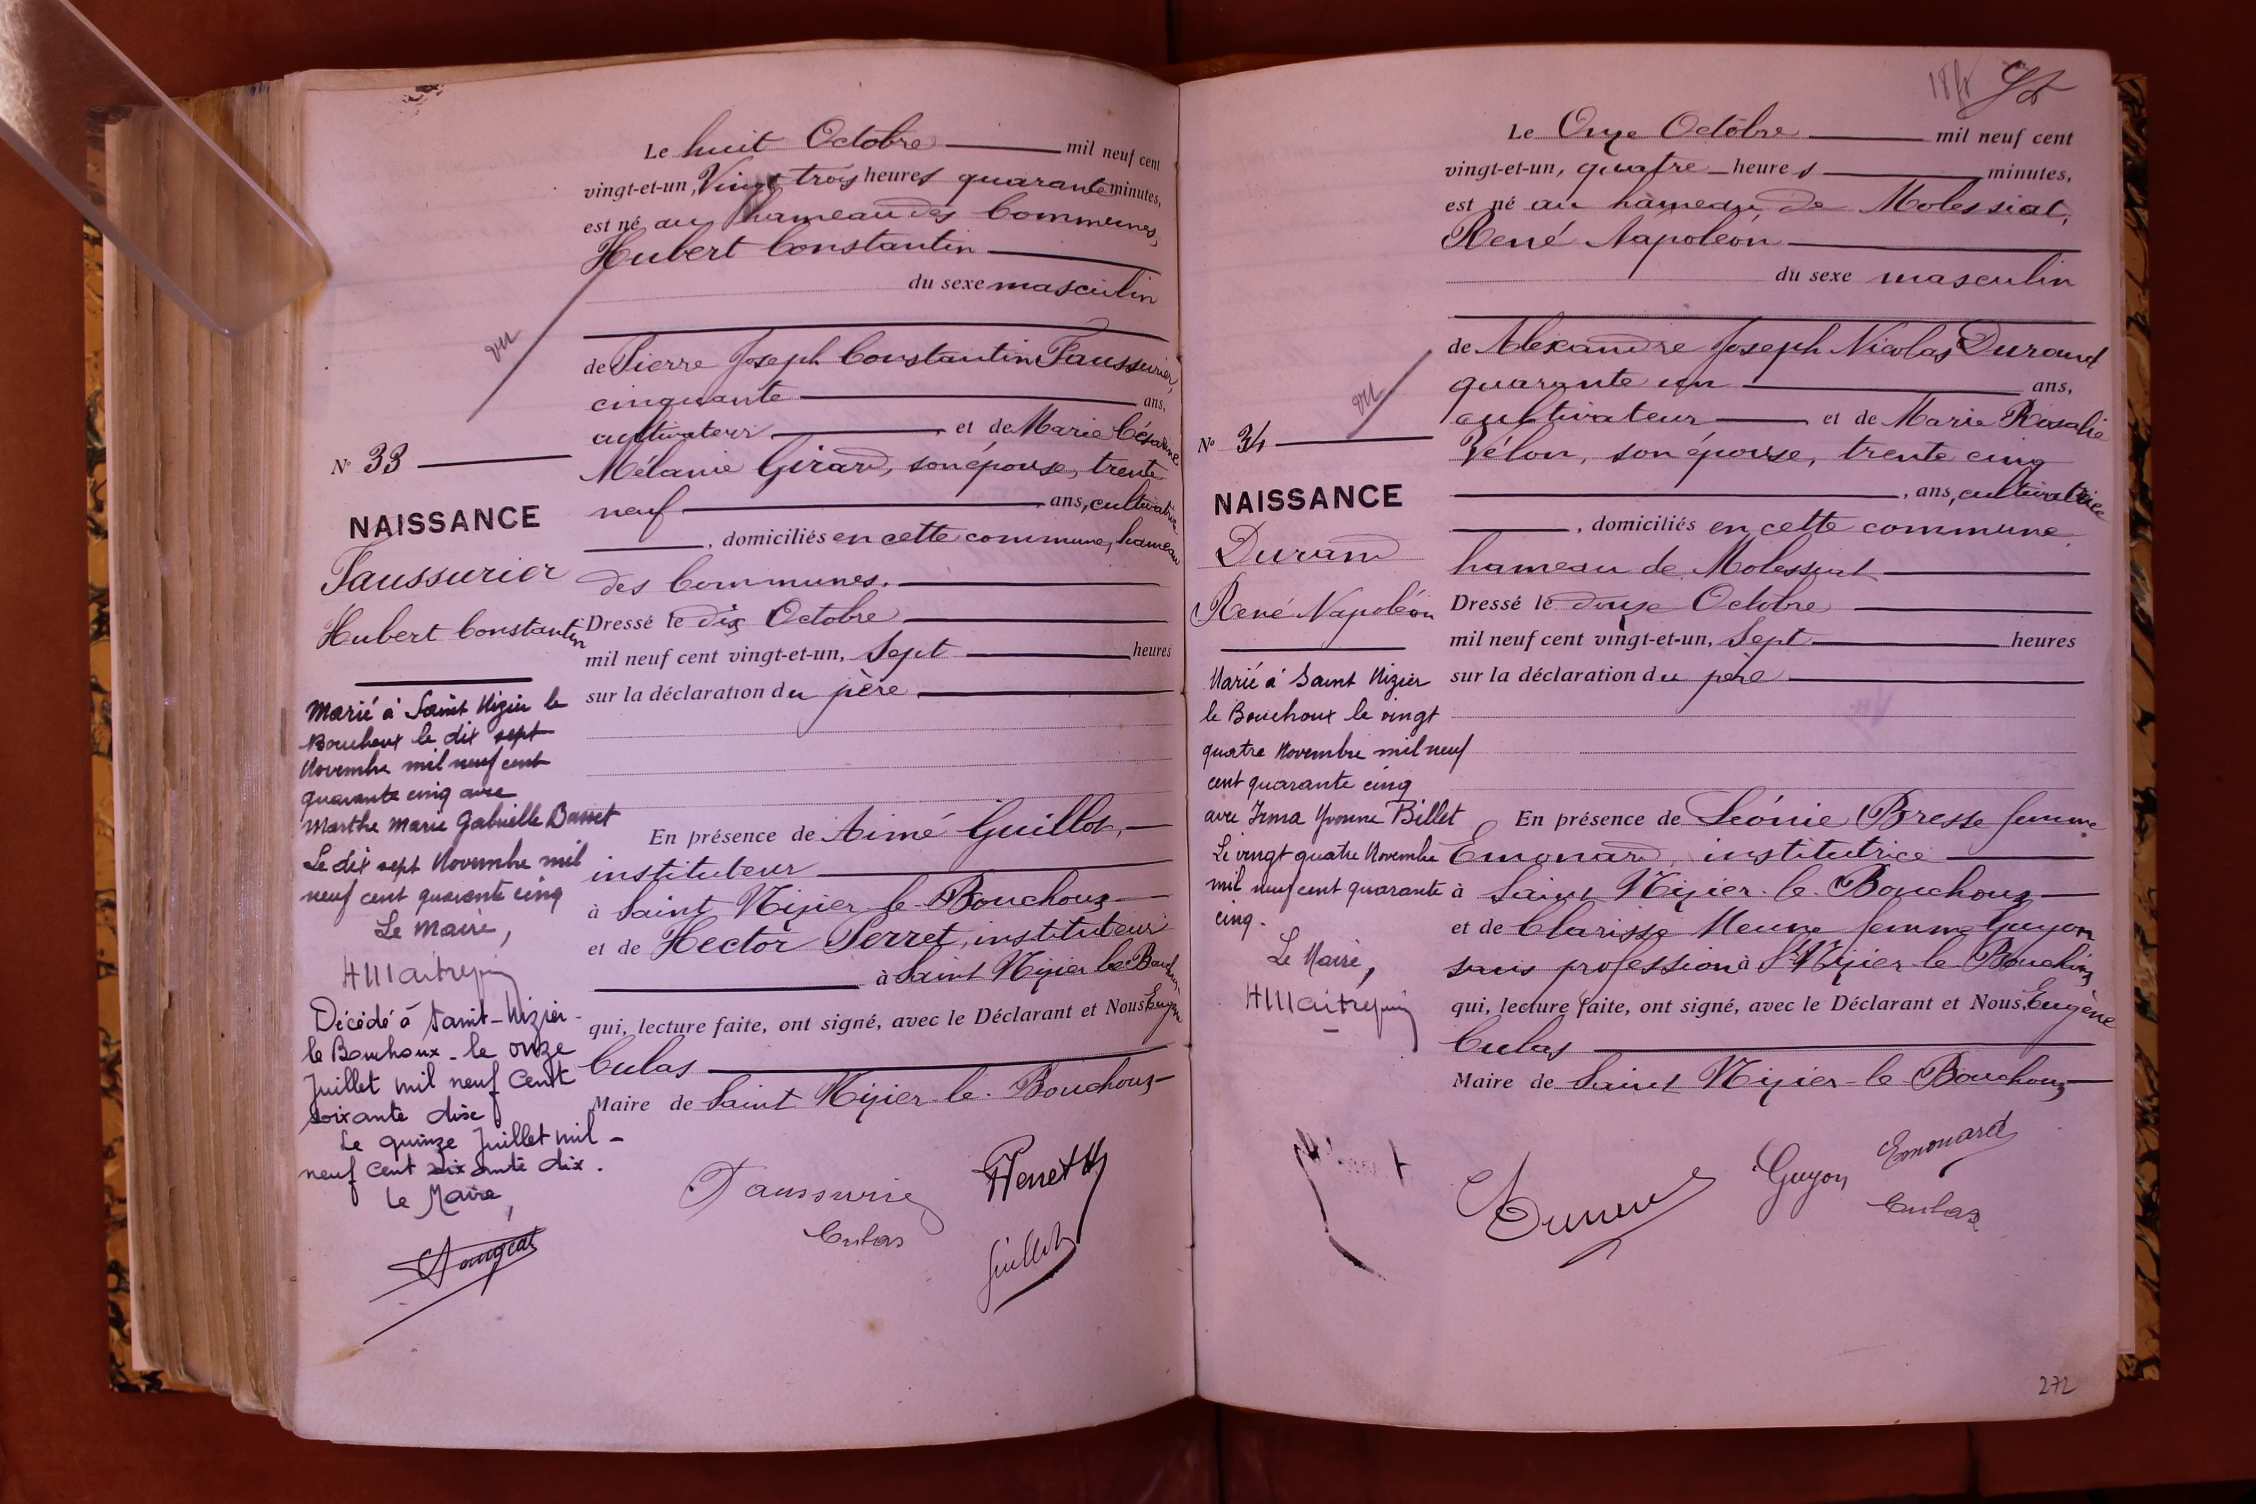 Le huit Octobre mil neuf cent
vingt-et-un, Vingt trois heures quarante minutes,
est né au hameau des Communes,
Hubert Constantin
du sexe masculin
vu
de Pierre Joseph Constantin Faussurier,
cinquante ans,
cultivateur, et de Marie Césarine
Mélanie Girard, son épouse, trente
neuf ans, cultivatrice
, domiciliés en cette commune, hameau
des Communes.
Dressé le dix Octobre
mil neuf cent vingt-et-un, Sept heures
sur la déclaration du père
En présence de Aimé Guillot,
instituteur
à Saint Nizier-le-Bouchoux
et de Hector Perret, instituteur
à Saint Nizier le Bouchoux
qui, lecture faite, ont signé, avec le Déclarant et Nous, Eugène
Culas
Maire de Saint Nizier-le-Bouchoux
Faussurier
Culas
Guillot
N° 33
NAISSANCE
Faussurier
Hubert Constantin
Marié à Saint Nizier le
Bouchoux le dix sept
Novembre mil neuf cent
quarante cinq avec
Marthe Marie Gabrielle Basset
Le dix sept Novembre mil
neuf cent quarante cinq
Le Maire,
Décédé à Saint-Nizier-
le Bouchoux - le onze
Juillet mil neuf Cent
soixante dix
Le quinze Juillet mil -
neuf Cent soixante dix.
Le Maire,
Le Onze Octobre mil neuf cent
vingt-et-un, quatre heures minutes,
est né au hameau de Molessiat,
René Napoléon
du sexe masculin
vu
de Alexandre Joseph Nicolas Durand
quarante un ans,
cultivateur et de Marie Rosalie
Vélon, son épouse, trente cinq
, ans, cultivatrice
, domiciliés en cette commune,
hameau de Molessiat
Dressé le douze Octobre
mil neuf cent vingt-et-un, Sept heures
sur la déclaration du père
En présence de Léonie Bresse femme
Emonard, institutrice
à Saint Nizier-le-Bouchoux
et de Clarisse Meune femme Guyon
sans profession à St Nizier-le-Bouchoux
qui, lecture faite, ont signé, avec le Déclarant et Nous, Eugène
Culas
Maire de Saint Nizier-le-Bouchoux
Guyon
Emonard
Culas
N° 34
NAISSANCE
Durand
René Napoléon
Marié à Saint Nizier
le Bouchoux le vingt
quatre Novembre mil neuf
cent quarante cinq
avec Irma Yvonne Billet
Le vingt quatre Novembre
mil neuf cent quarante
cinq.
Le Maire,
272